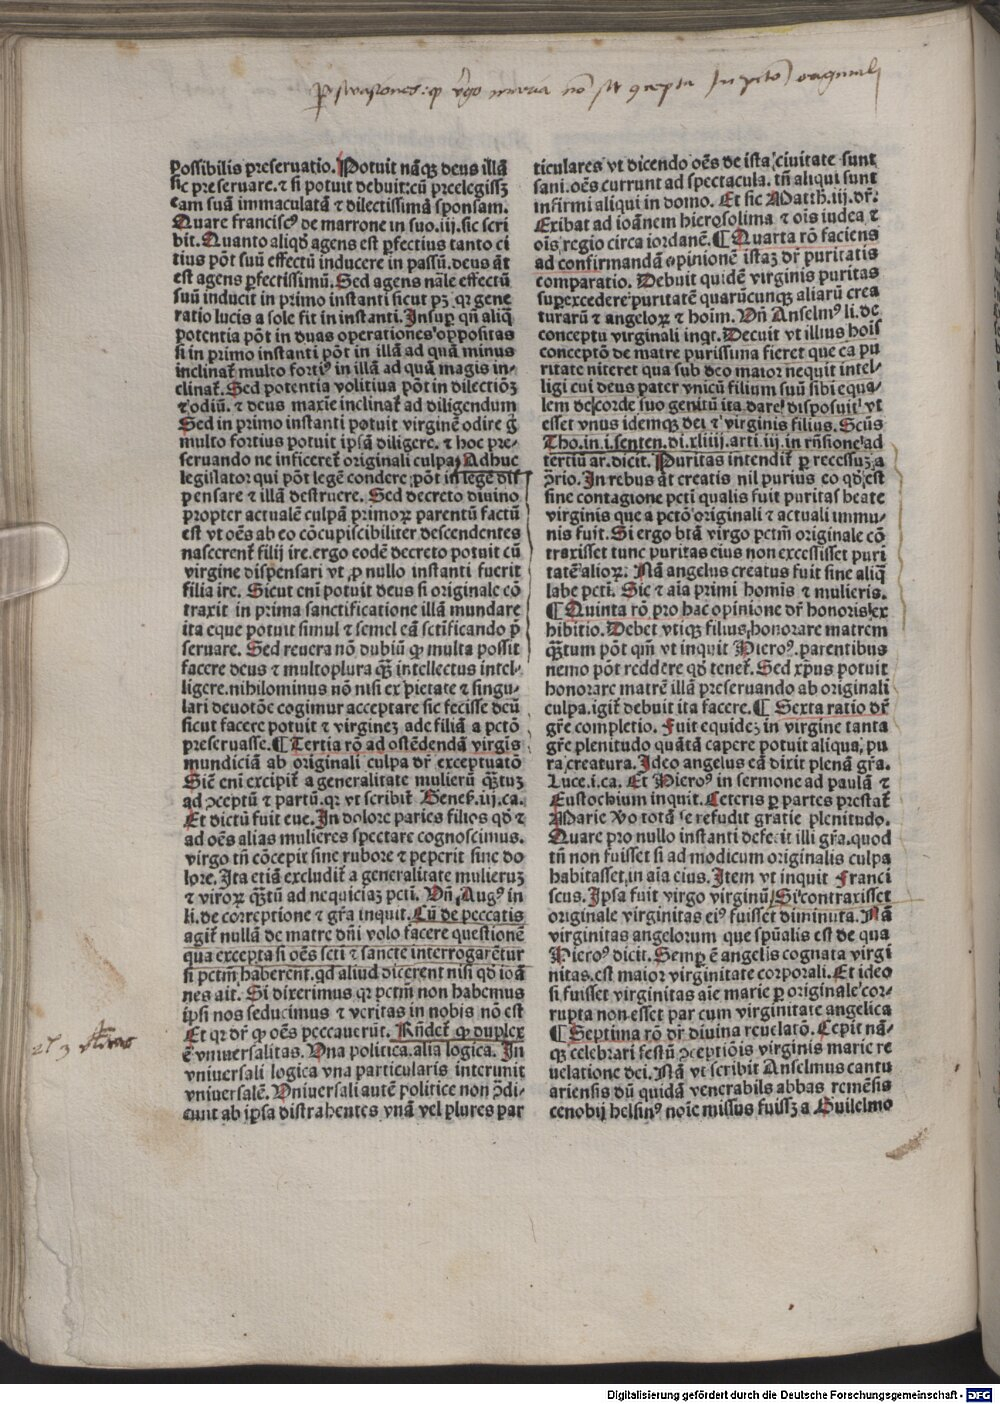 possibilis preseruatio. Potuit nãqꝫ deus illã
sic preseruare. ⁊ si potuit debuit: cũ preelegissꝫ
eam suã immaculatã ⁊ dilectissimã sponsam.
Quare franciscꝰ de marrone in suo .iij. sic scri
bit. Quanto aliqđ agens est ꝑfectius tanto ci
tius põt suũ effectũ inducere in passũ. deus aũt
est agens ꝑfectissimũ. Sed agens nãle effectũ
suũ inducit in primo instanti sicut pꝫ. qꝛ gene
ratio lucis a sole fit in instanti. Insuꝑ qñ aliq̃
potentia põt in duas operationes oppositas
si in primo instanti põt in illã ad quã minus
inclinať multo fortiꝰ in illã ad quã magis in-
clinať. Sed potentia volitiua põt in dilectiõꝫ
⁊ odiũ. ⁊ deus maxĩe inclinať ad diligendum
Sed in primo instanti potuit virginẽ odire g̃
multo fortius potuit ipsã diligere. ⁊ hoc pre-
seruando ne inficereť originali culpa. Adhuc
legislator qui põt legẽ condere põt in lege dis
pensare ⁊ illã destruere. Sed decreto diuino
propter actualẽ culpã primoꝝ parentũ factũ
est vt oẽs ab eo cõcupiscibiliter descendentes
nascerenť filij ire. ergo eodẽ decreto potuit cũ
virgine dispensari vt ꝓ nullo instanti fuerit
filia ire. Sicut eni potuit deus si originale cõ
traxit in prima sanctificatione illã mundare
ita eque potuit simul ⁊ semel eã sctificando p̃
seruare. Sed reuera nõ dubiũ ꝙ multa possit
facere deus ⁊ multoplura qꝫ̃ intellectus intel-
ligere. nihilominus nõ nisi ex pietate ⁊ singu-
lari deuotõe cogimur acceptare sic fecisse deũ
sicut facere potuit ⁊ virginez ade filiã a pctõ
preseruasse. ¶ Tertia rõ ad ostẽdendã virgĩs
mundiciã ab originali culpa dr̃ exceptuatõ
Sic̃ eni excipiť a generalitate mulierũ qꝫ̃tuꝫ
ad ↄceptũ ⁊ partũ. qꝛ vt scribiť Geneš. iij. ca.
Et dictũ fuit eue. In dolore paries filios qđ ⁊
ad oẽs alias mulieres spectare cognoscimus.
virgo tñ cõcepit sine rubore ⁊ peperit sine do
lore. Ita etiã excludiť a generalitate mulieruꝫ
⁊ viroꝝ qꝫ̃tũ ad nequiciaꝫ pcti. Vñ Augꝰ in
li. de correptione ⁊ gr̃a inquit. Cũ de peccatis
agiť nullã de matre dñi volo facere questionẽ
qua excepta si oẽs scti ⁊ sancte interrogarẽtur
si pctm̃ haberent. qđ aliud dicerent nisi qđ ioã
nes ait. Si dixerimus qꝛ pctm̃ non habemus
ipsi nos seducimus ⁊ veritas in nobis nõ est
Et qꝛ dr̃ ꝙ oẽs peccauerũt. Rñdeť ꝙ duplex
ẽ vniuersalitas. Vna politica. alia logica. In
vniuersali logica vna particularis interimit
vniuersalẽ. Vniuersali autẽ politice non p̃di-
cunt ab ipsa distrahentes vnã vel plures par
ticulares vt dicendo oẽs de ista ciuitate sunt
sani. oẽs currunt ad spectacula. tñ aliqui sunt
infirmi aliqui in domo. Et sic Matth̃. iij. dr̃.
Exibat ad ioãnem hierosolima ⁊ oĩs iudea ⁊
oĩs regio circa iordanẽ. ¶ Quarta rõ faciens
ad confirmandã opinionẽ istaꝫ dr̃ puritatis
comparatio. Debuit quidẽ virginis puritas
superexcedere puritatẽ quarũcunqꝫ aliarũ crea
turarũ ⁊ angeloꝝ ⁊ hoim. Vñ Anselmꝰ li. de
conceptu virginali inqt. Decuit vt illius hoĩs
conceptõ de matre purissima fieret que ea pu
ritate niteret qua sub deo maior nequit intel-
ligi cui deus pater vnicũ filium suũ sibi equa-
lem de corde suo genitũ ita dare disposuit vt
esset vnus idemqꝫ dei ⁊ virginis filius. Sctũs
Tho. in .i. senten. di. xliiij. arti. iij. in rñsione ad
tertiũ ar. dicit. Puritas intendiť ꝑ recessuꝫ a
ↄ̃rio. In rebus aũt creatis nil purius eo qđ est
sine contagione pcti qualis fuit puritas beate
virginis que a pctõ originali ⁊ actuali immu-
nis fuit. Si ergo btã virgo pctm̃ originale cõ
traxisset tunc puritas eius non excessisset puri
tatẽ alioꝝ. Nã angelus creatus fuit sine aliq̃
labe pcti. Sic ⁊ aĩa primi homis ⁊ mulieris.
¶ Quinta rõ pro hac opinione dr̃ honoris ex
hibitio. Debet vtiqꝫ filius honorare matrem
qꝫ̃tum põt qm̃ vt inquit Hieroꝰ. parentibus
nemo põt reddere qđ teneť. Sed xp̃us potuit
honorare matrẽ illã preseruando ab originali
culpa. igiť debuit ita facere. ¶ Sexta ratio dr̃
gr̃e completio. Fuit equidez in virgine tanta
gr̃e plenitudo quãtã capere potuit aliqua pu
ra creatura. Ideo angelus eã dixit plenã gr̃a.
Luce. i. ca. Et Hieroꝰ in sermone ad paulã ⁊
Eustochium inquit. Ceteris ꝑ partes prestať
Marie ꝟo tota se refudit gratie plenitudo.
Quare pro nullo instanti defecit illi gr̃a. quod
tñ non fuisset si ad modicum originalis culpa
habitasset in aĩa eius. Item vt inquit Franci
scus. Ipsa fuit virgo virginũ. Si contraxisset
originale virginitas eiꝰ fuisset diminuta. Nã
virginitas angelorum que spũalis est de qua
Hieroꝰ dicit. Semꝑ ẽ angelis cognata virgi
nitas. est maior virginitate corporali. Et ideo
si fuisset virginitas aĩe marie ꝑ originale cor-
rupta non esset par cum virginitate angelica
¶ Septima rõ dr̃ diuina reuelatõ. Cepit nã-
qꝫ celebrari festũ ↄceptiõis virginis marie re
uelatione dei. Nã vt scribit Anselmus cantu
ariensis dũ quidã venerabĩs abbas remẽsis
cenobij helsinꝰ noĩe missus fuissꝫ a Guilelmo
Digitalisierung gefördert durch die Deutsche Forschungsgemeinschaft - DFG